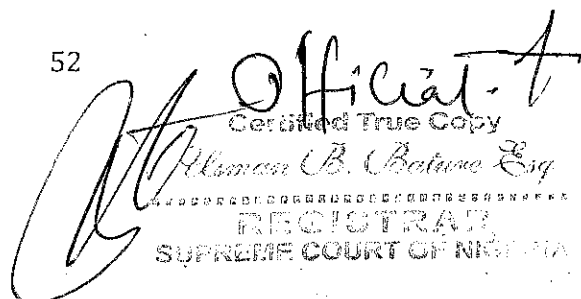 52
Official.
Certified True Copy
Usman B. Bature Esq
REGISTRAR
SUPREME COURT OF NIGERIA